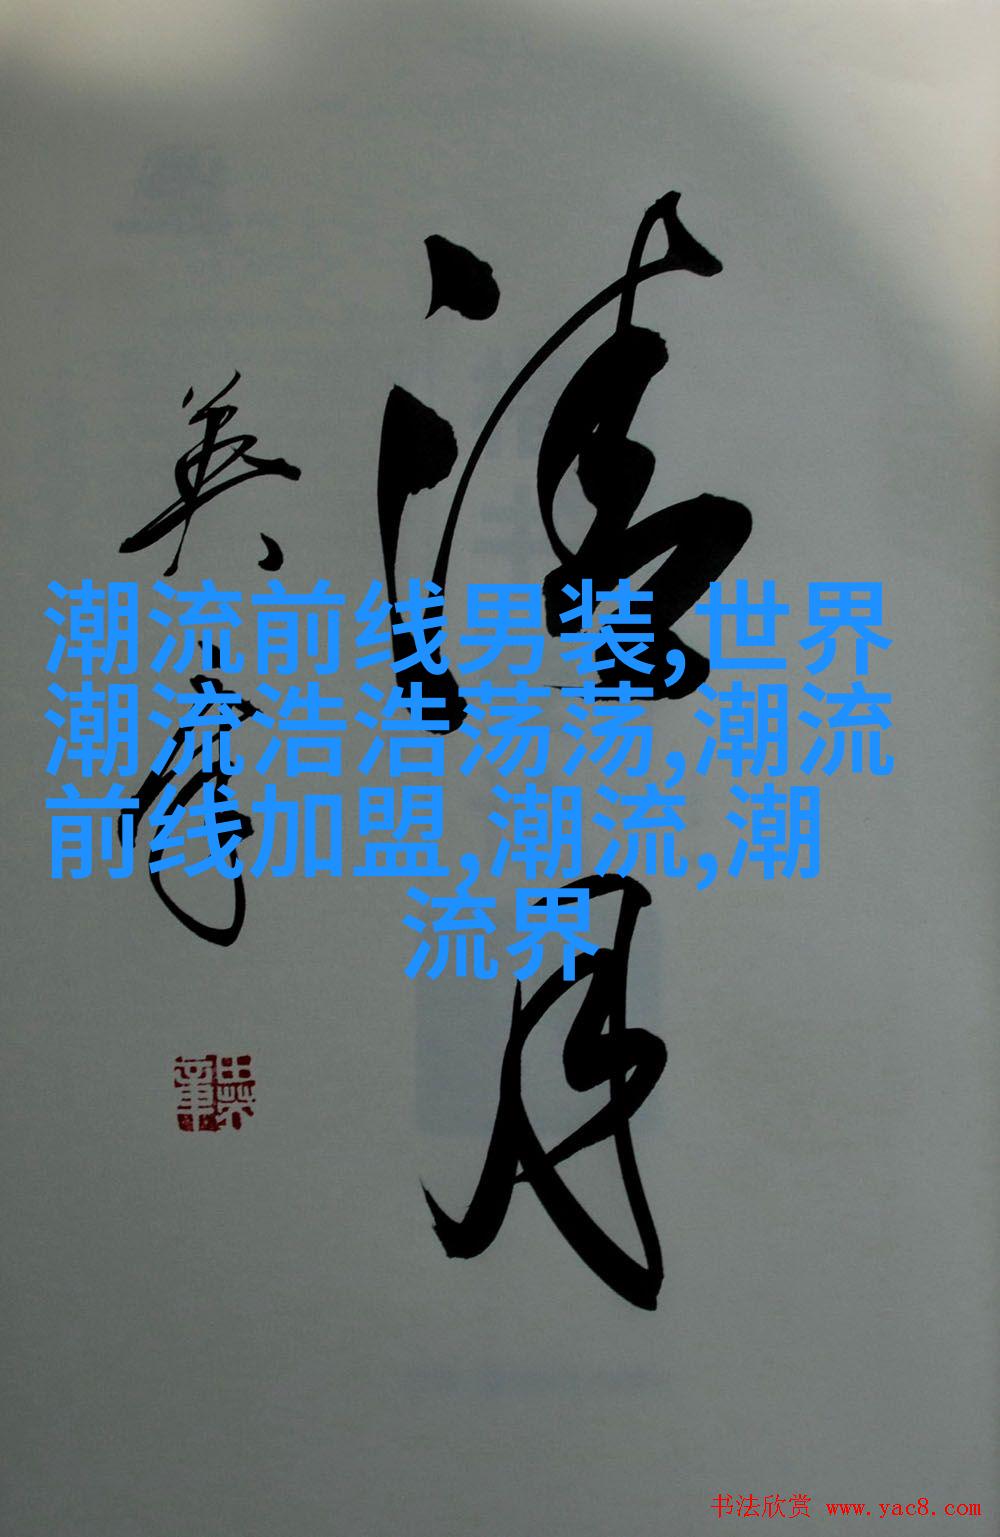 潮流前线男装,世界
潮流浩浩荡荡,潮流
前线加盟,潮流,潮
流界
清月
英章
书法欣赏 www.yac8.com